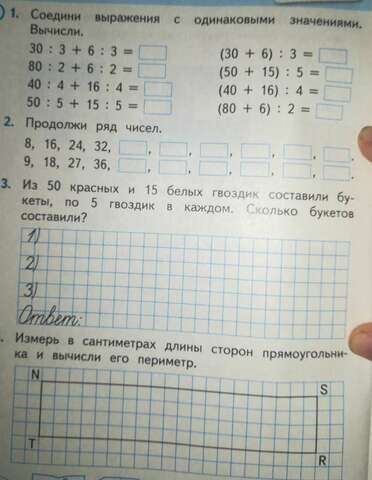 1. Соедини выражения с одинаковыми значениями.
Вычисли.
30 : 3 + 6 : 3 =
(30 + 6) : 3 =
80 : 2 + 6 : 2 =
(50 + 15) : 5 =
40 : 4 + 16 : 4 =
(40 + 16) : 4 =
50 : 5 + 15 : 5 =
(80 + 6) : 2 =
2. Продолжи ряд чисел.
8, 16, 24, 32, , , , , , .
9, 18, 27, 36, , , , , , .
3. Из 50 красных и 15 белых гвоздик составили бу-
кеты, по 5 гвоздик в каждом. Сколько букетов
составили?
1)
2)
3)
Ответ:
. Измерь в сантиметрах длины сторон прямоугольни-
ка и вычисли его периметр.
N
S
T
R